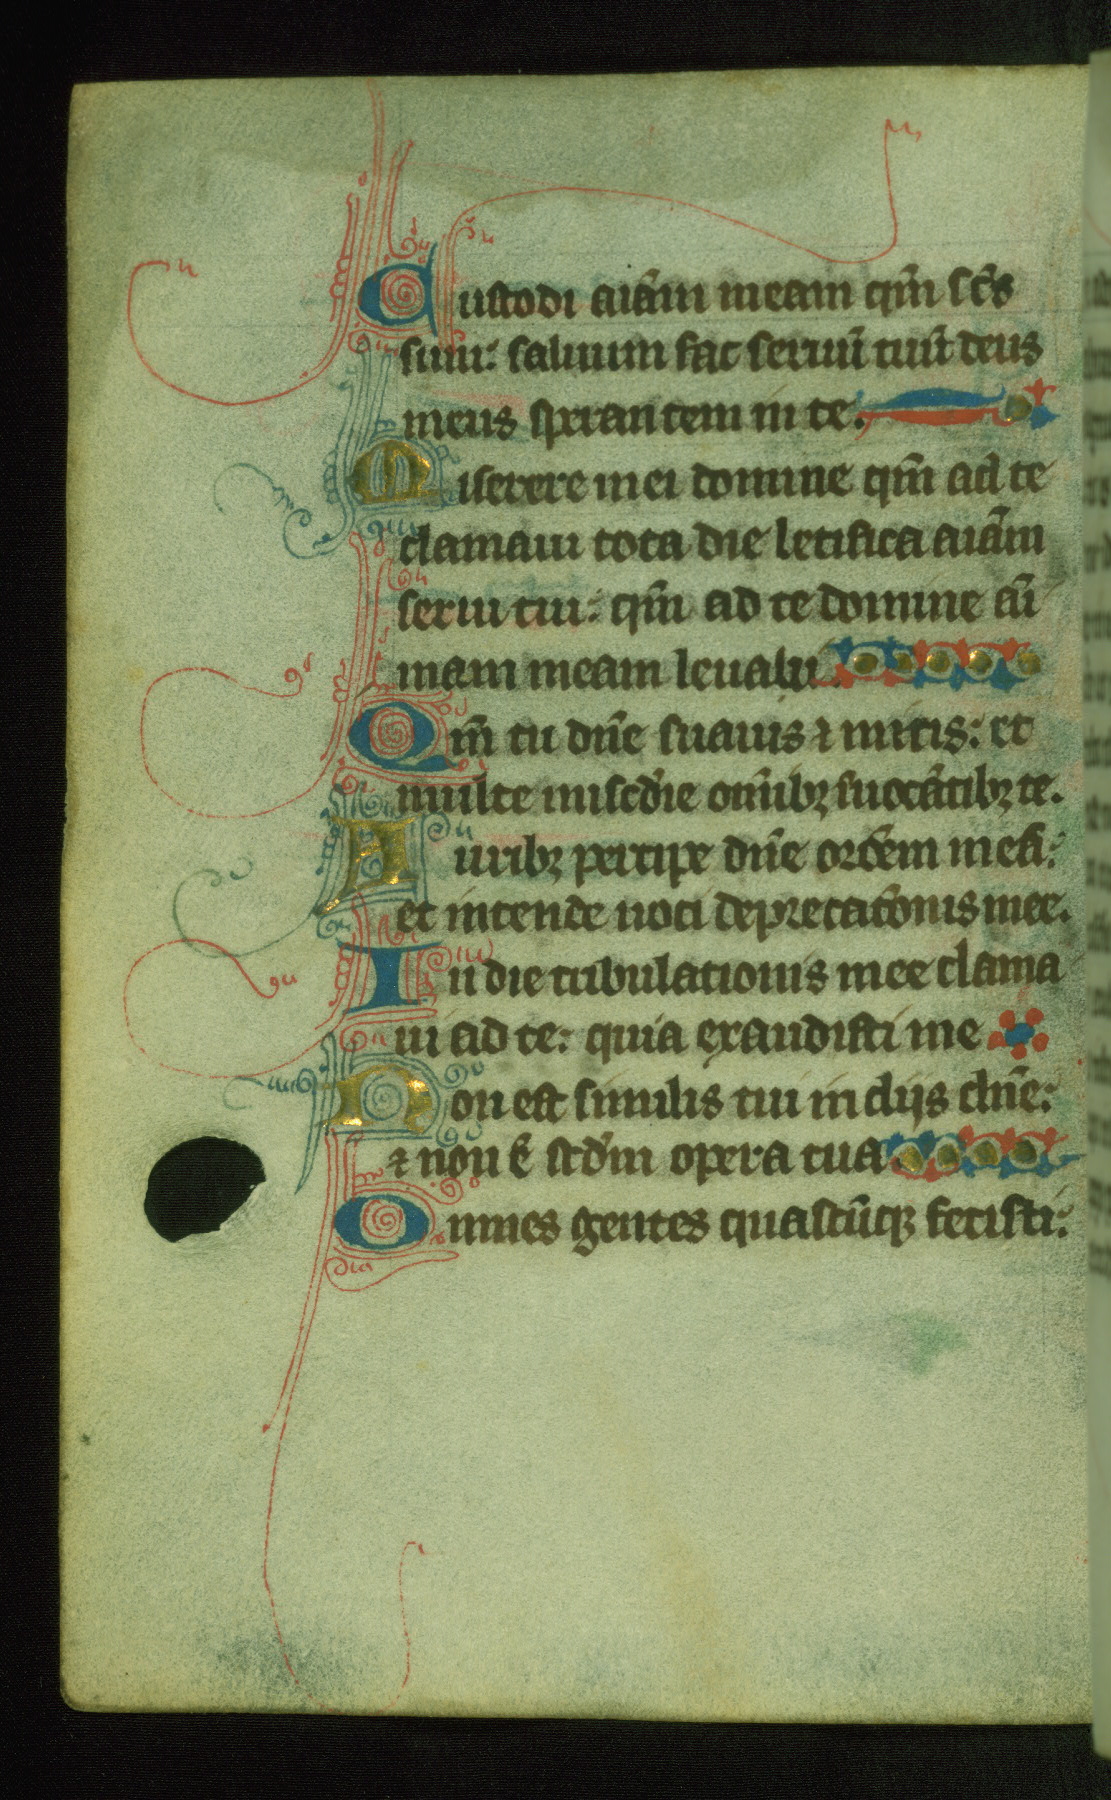 Custodi aiām meam qm̄ sc̄s
sum: saluum fac seruū tuū deus
meus sperantem in te.
Miserere mei domine qm̄ ad te
clamaui tota die letifica aiām
serui tui: qm̄ ad te domine ani
mam meam leuaui
Qm̄ tu dn̄e suauis ⁊ mitis: et
multe misc̄die om̄ibꝫ īuocātibꝫ te.
Auribꝫ percipe dn̄e or̄oem meā:
et intende uoci deprecat̄onis mee.
In die tribulationis mee clama
ui ad te: quia exaudisti me
Non est similis tui in diis dn̄e:
⁊ non ē sc̄dm opera tua
Omnes gentes quascūqꝫ fecisti: